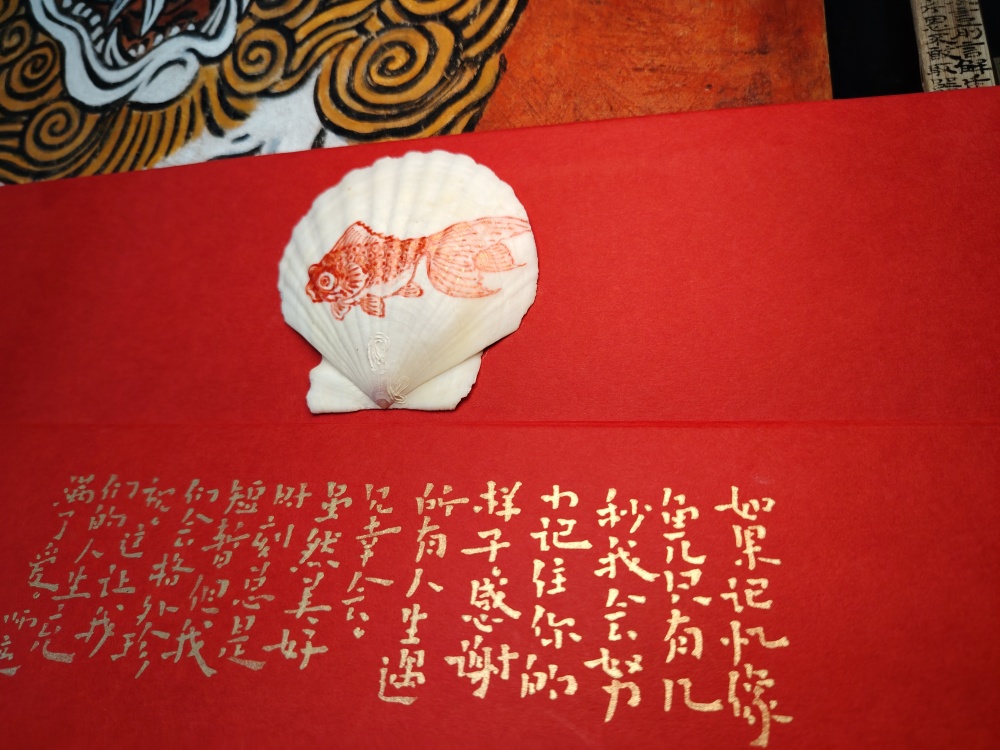 如果记忆像
鱼儿只有几
秒我会努
力记住你的
样子。感谢
所有人生遇
见幸会。
虽然美好
时刻总是
短暂但我
们会格外珍
视。这让我
们的人生充
满了爱。